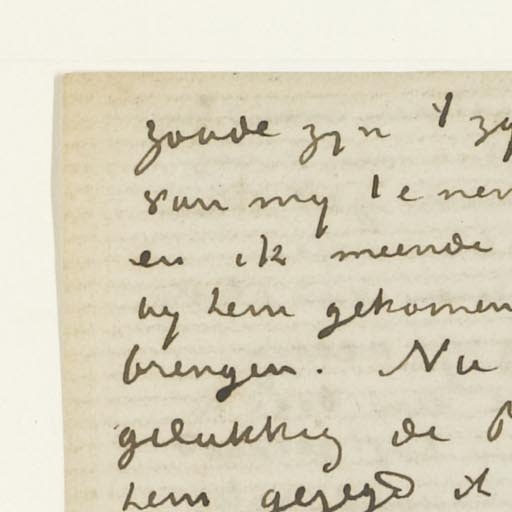 zoude zyn 't zy
van my te nem
en ik meende
by hem gekomen
brengen. Nu
gelukkig de
hem gezegd ik